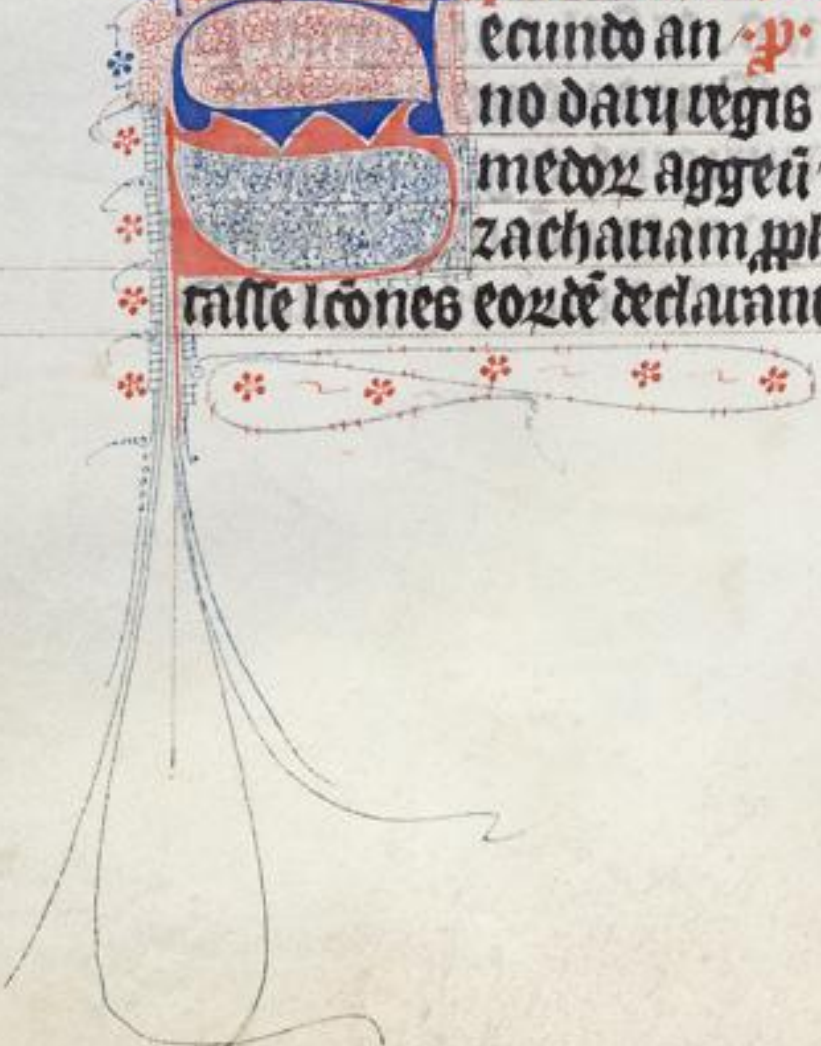 Secundo an ·p·
no darii regis
medoꝝ aggeū
zachariam ꝓph
tasse lcōnes eoꝝdē declarand